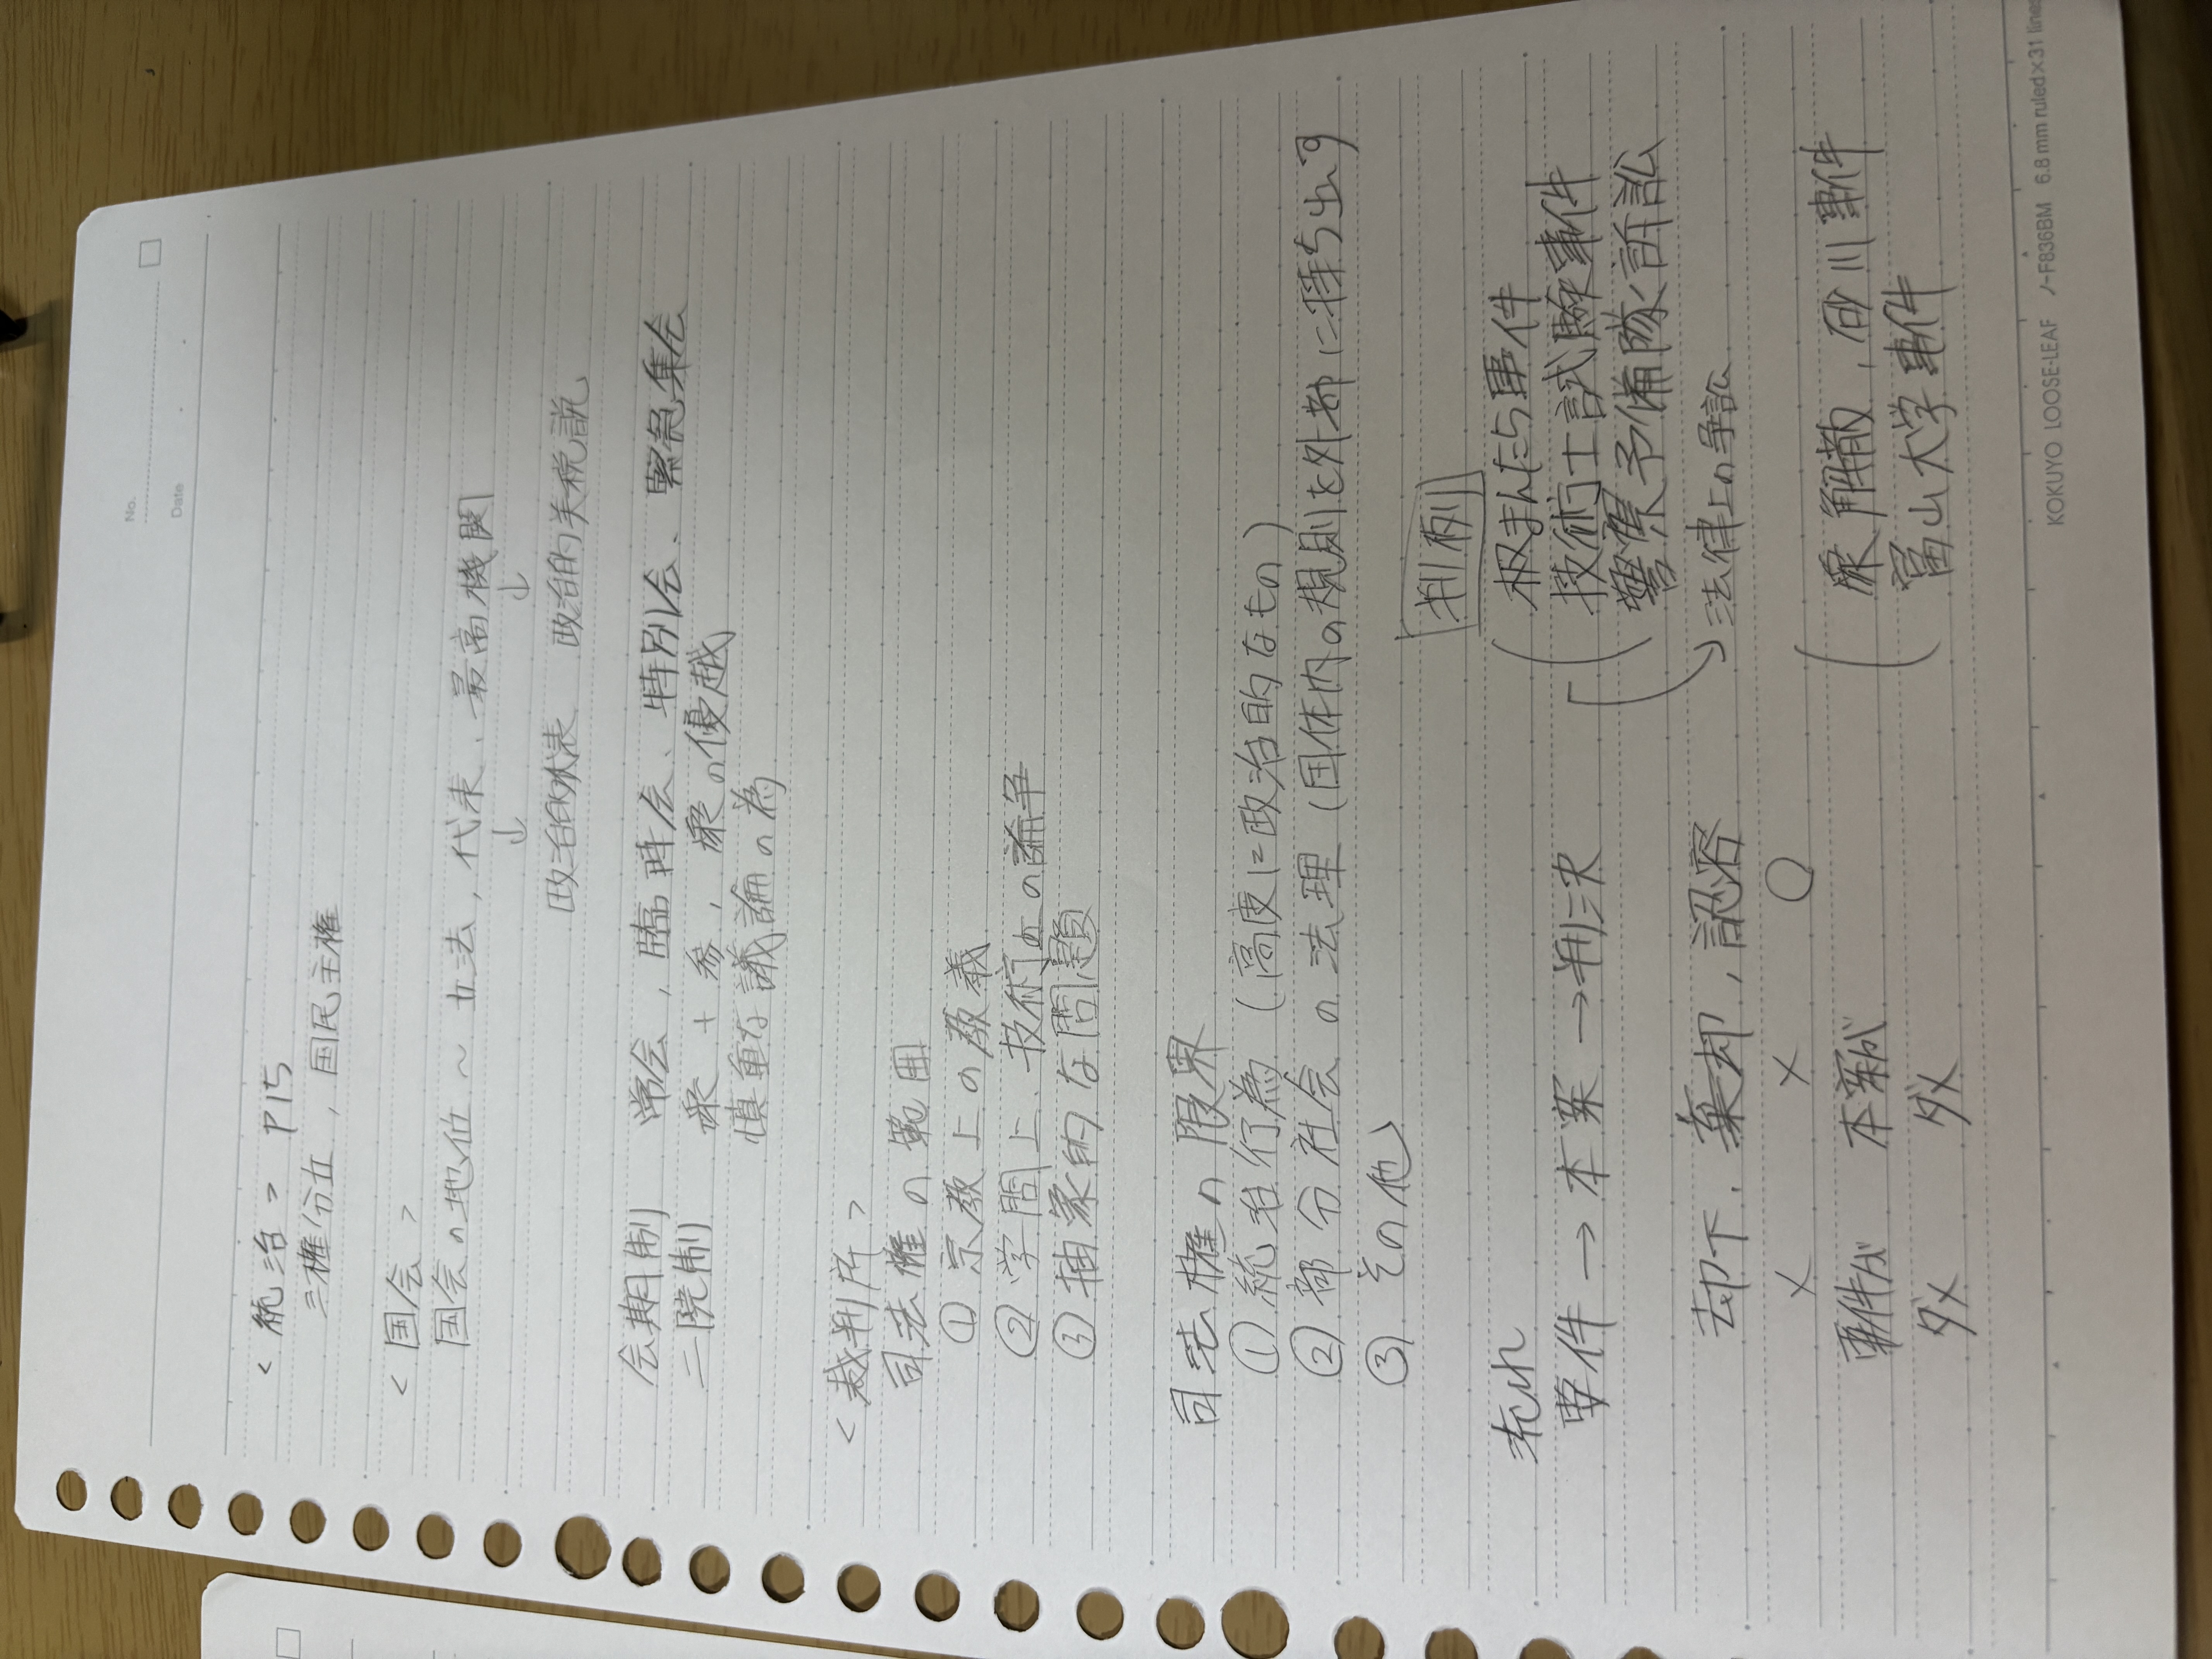 No.
Date
<統治> P15
三権分立, 国民主権
<国会>
国会の地位 ~ 立法, 代表, 最高機関
↓ ↓
政治的代表 政治的美称説
会期制 常会, 臨時会、特別会、緊急集会
二院制 衆 + 参, 衆の優越
慎重な議論の為
<裁判所>
司法権の範囲
① 宗教上の教義
② 学問上、技術上の論争
③ 抽象的な問題
司法権の限界
① 統治行為 (高度に政治的なもの)
② 部分社会の法理 (団体内の規則を外部に持ち出す
③ その他
判例
流れ
板まんだら事件
要件 → 本案 → 判決
技術士試験事件
警察予備隊訴訟
却下, 棄却, 認容
法律上の争訟
× × ○
要件が 本案が
ダメ ダメ
衆解散, 砂川事件
富山大学事件
KOKUYO LOOSE-LEAF ノ-F836BM 6.8 mm ruled×31 lines